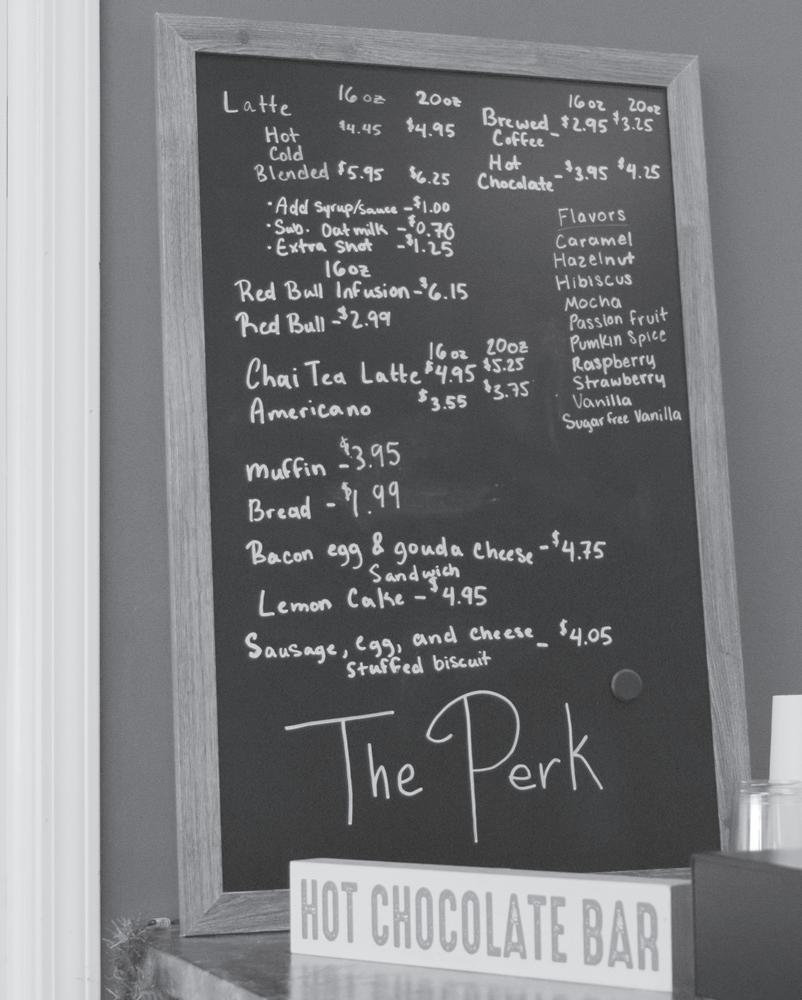 Latte 16 oz 20oz
Hot $4.45 $4.95
Cold
Blended $5.95 $6.25
· Add Syrup/Sauce - $1.00
· Sub. Oat milk - $0.70
· Extra Shot - $1.25
16oz
Red Bull Infusion - $6.15
Red Bull - $2.99
16 oz 20oz
Chai Tea Latte $4.95 $5.25
Americano $3.55 $3.75
Muffin - $3.95
Bread - $1.99
Bacon egg & gouda cheese - $4.75
Sandwich
Lemon Cake - $4.95
Sausage, egg, and cheese - $4.05
Stuffed biscuit
16 oz 20oz
Brewed - $2.95 $3.25
Coffee
Hot
Chocolate - $3.95 $4.25
Flavors
Caramel
Hazelnut
Hibiscus
Mocha
Passion fruit
Pumkin Spice
Raspberry
Strawberry
Vanilla
Sugar free Vanilla
The Perk
HOT CHOCOLATE BAR